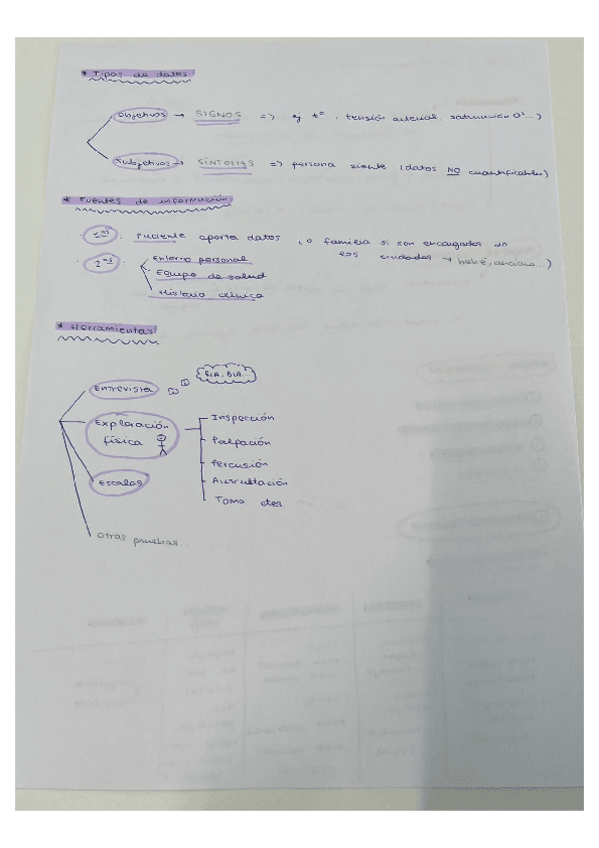 * Tipos de datos
Objetivos → SIGNOS => ej tª, tensión arterial, saturación O²...)
Subjetivos → SÍNTOMAS => persona siente (datos NO cuantificables)
* Fuentes de información
1ªˢ : Paciente aporta datos (o familia si son encargados de
los cuidados → bebé, anciano...)
2ªˢ : Entorno personal
Equipo de salud
Historia clínica
* Herramientas
Entrevista BLA, BLA...
Exploración física
Inspección
Palpación
Percusión
Auscultación
Toma ctes.
Escalas
Otras pruebas...